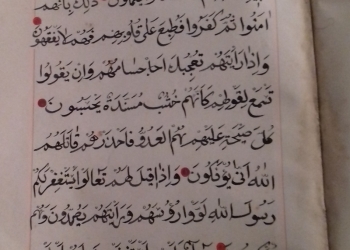 ذلك بانهم
امنوا ثم كفروا فطبع على قلوبهم فهم لا يفقهون
واذا رايتهم تعجبك اجسامهم وان يقولوا
تسمع لقولهم كانهم خشب مسندة يحسبون
كل صيحة عليهم هم العدو فاحذرهم قاتلهم
الله انى يؤفكون واذا قيل لهم تعالوا يستغفر لكم
رسول الله لووا رؤسهم ورايتهم يصدون وهم